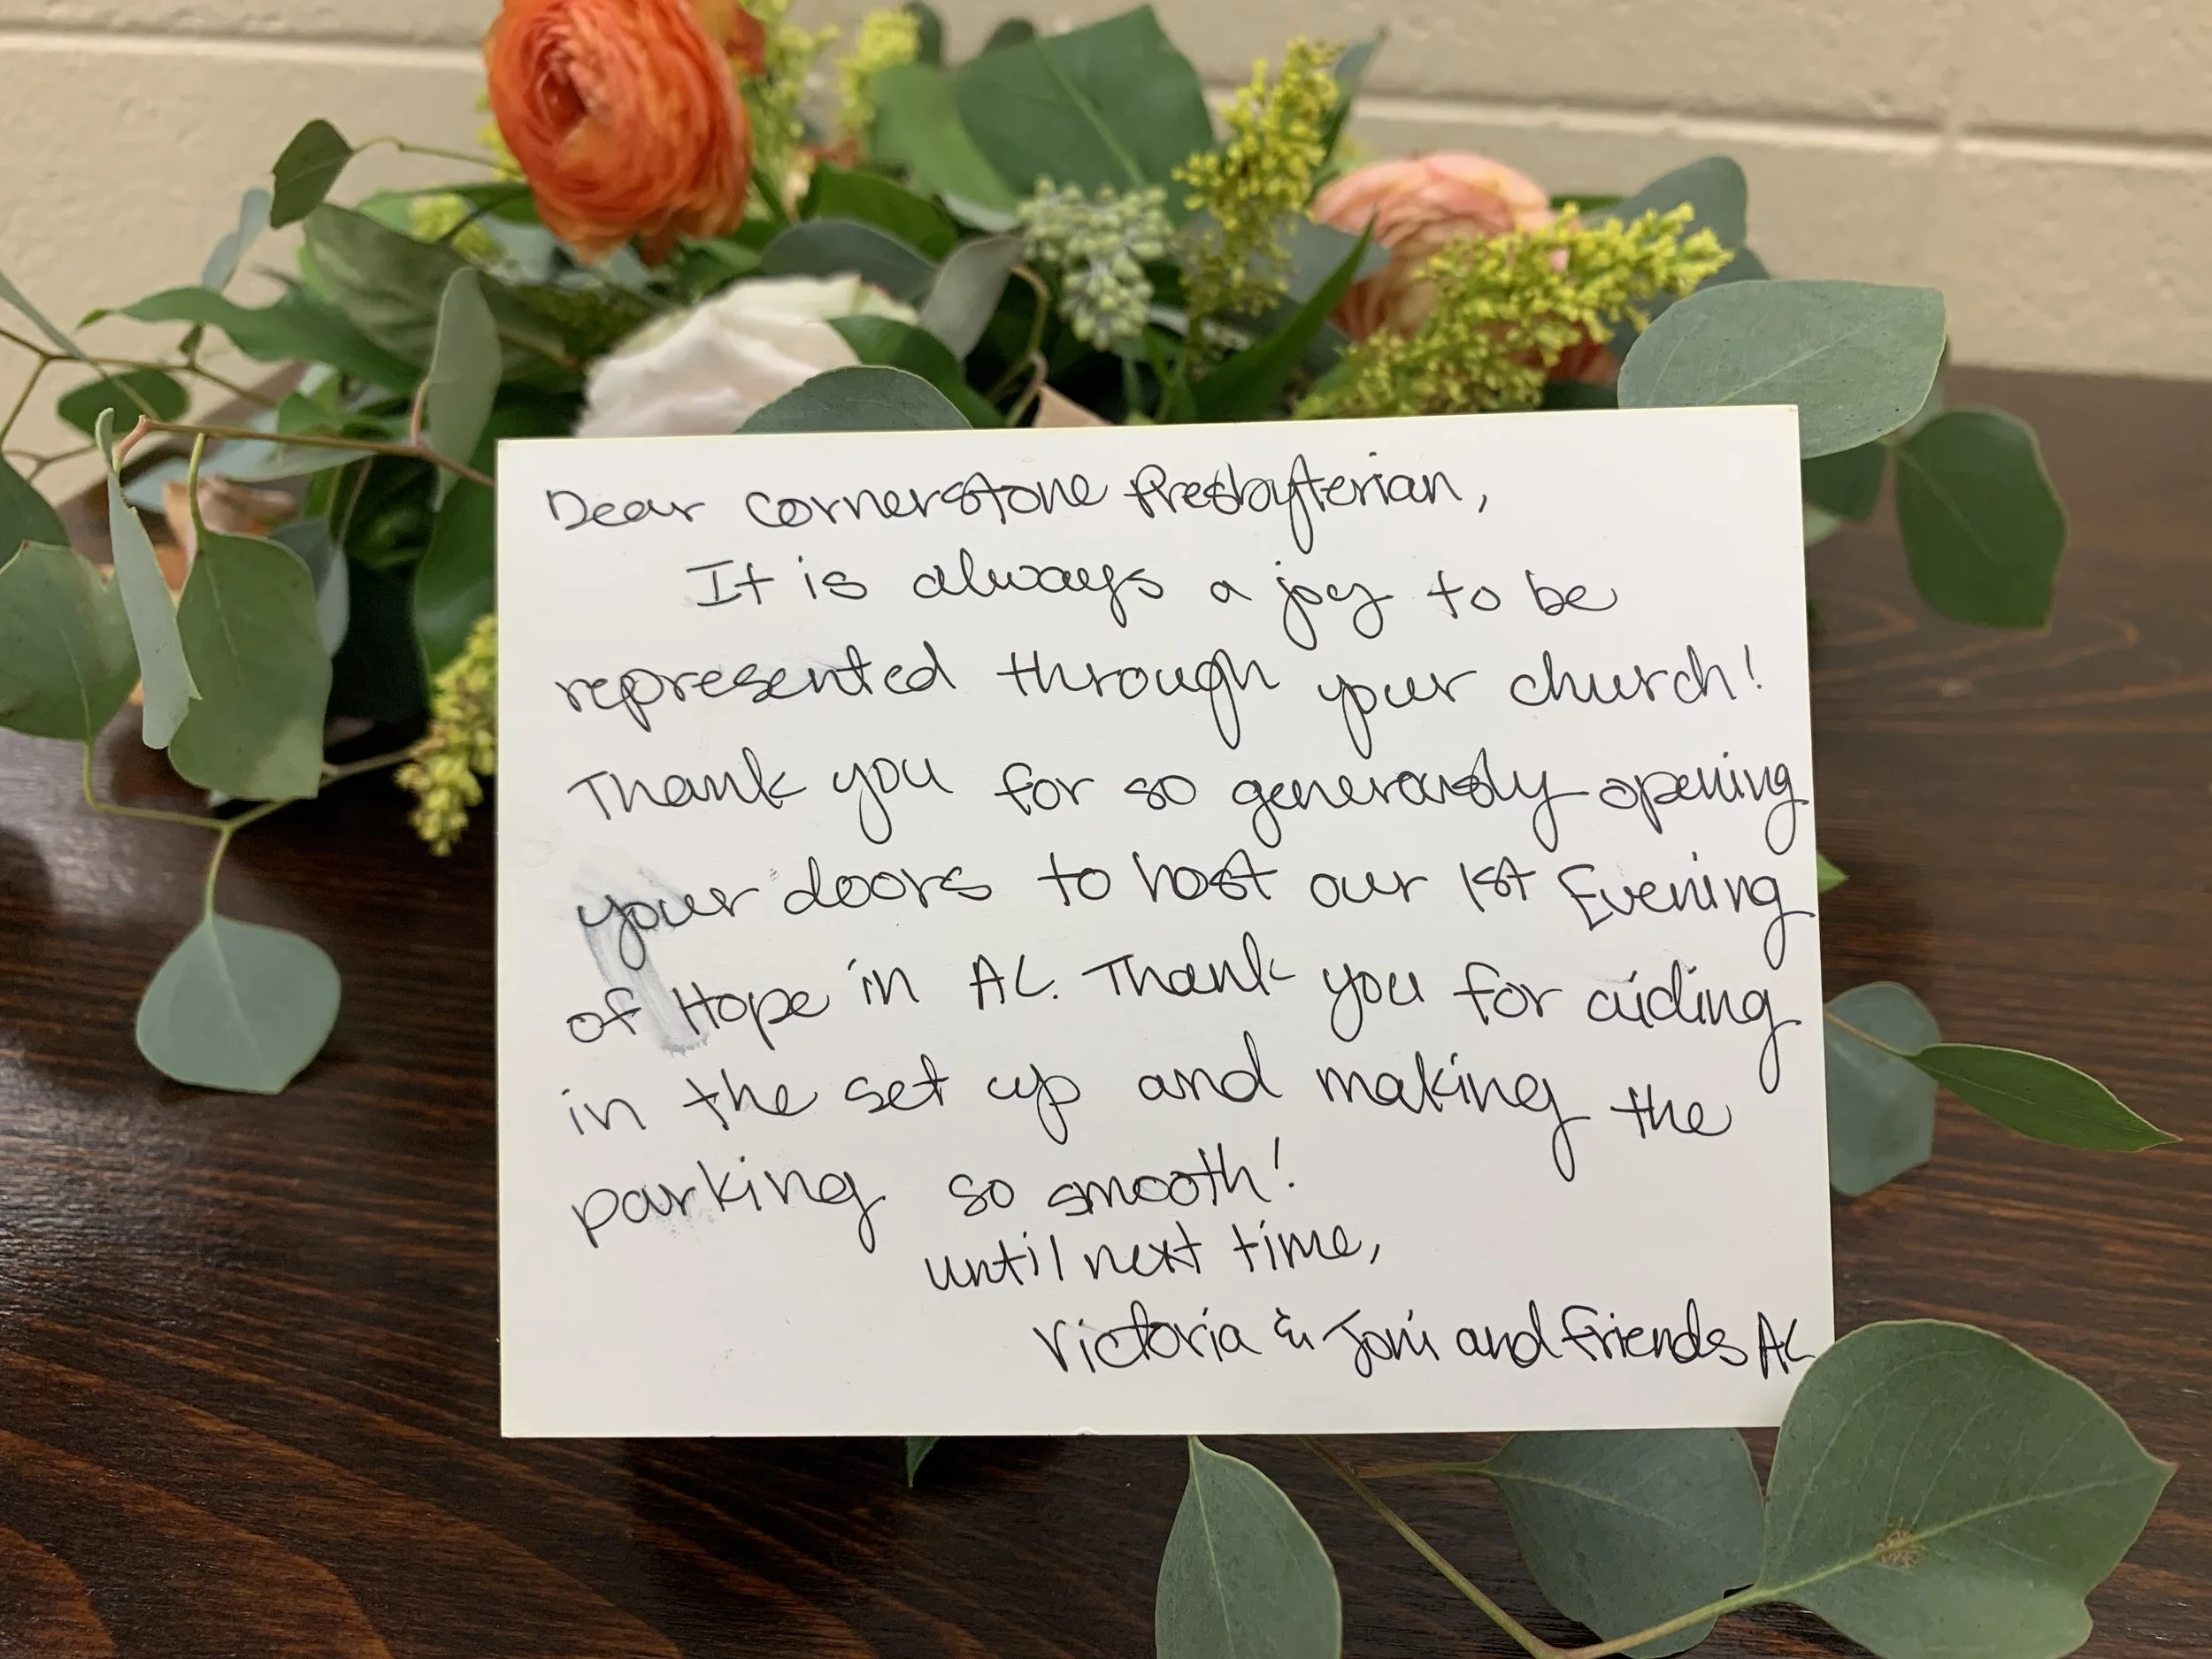 Dear Cornerstone Presbyterian,
It is always a joy to be
represented through your church!
Thank you for so generously opening
your doors to host our 1st Evening
of Hope in AL. Thank you for aiding
in the set up and making the
parking so smooth!
until next time,
Victoria & Joni and Friends AL